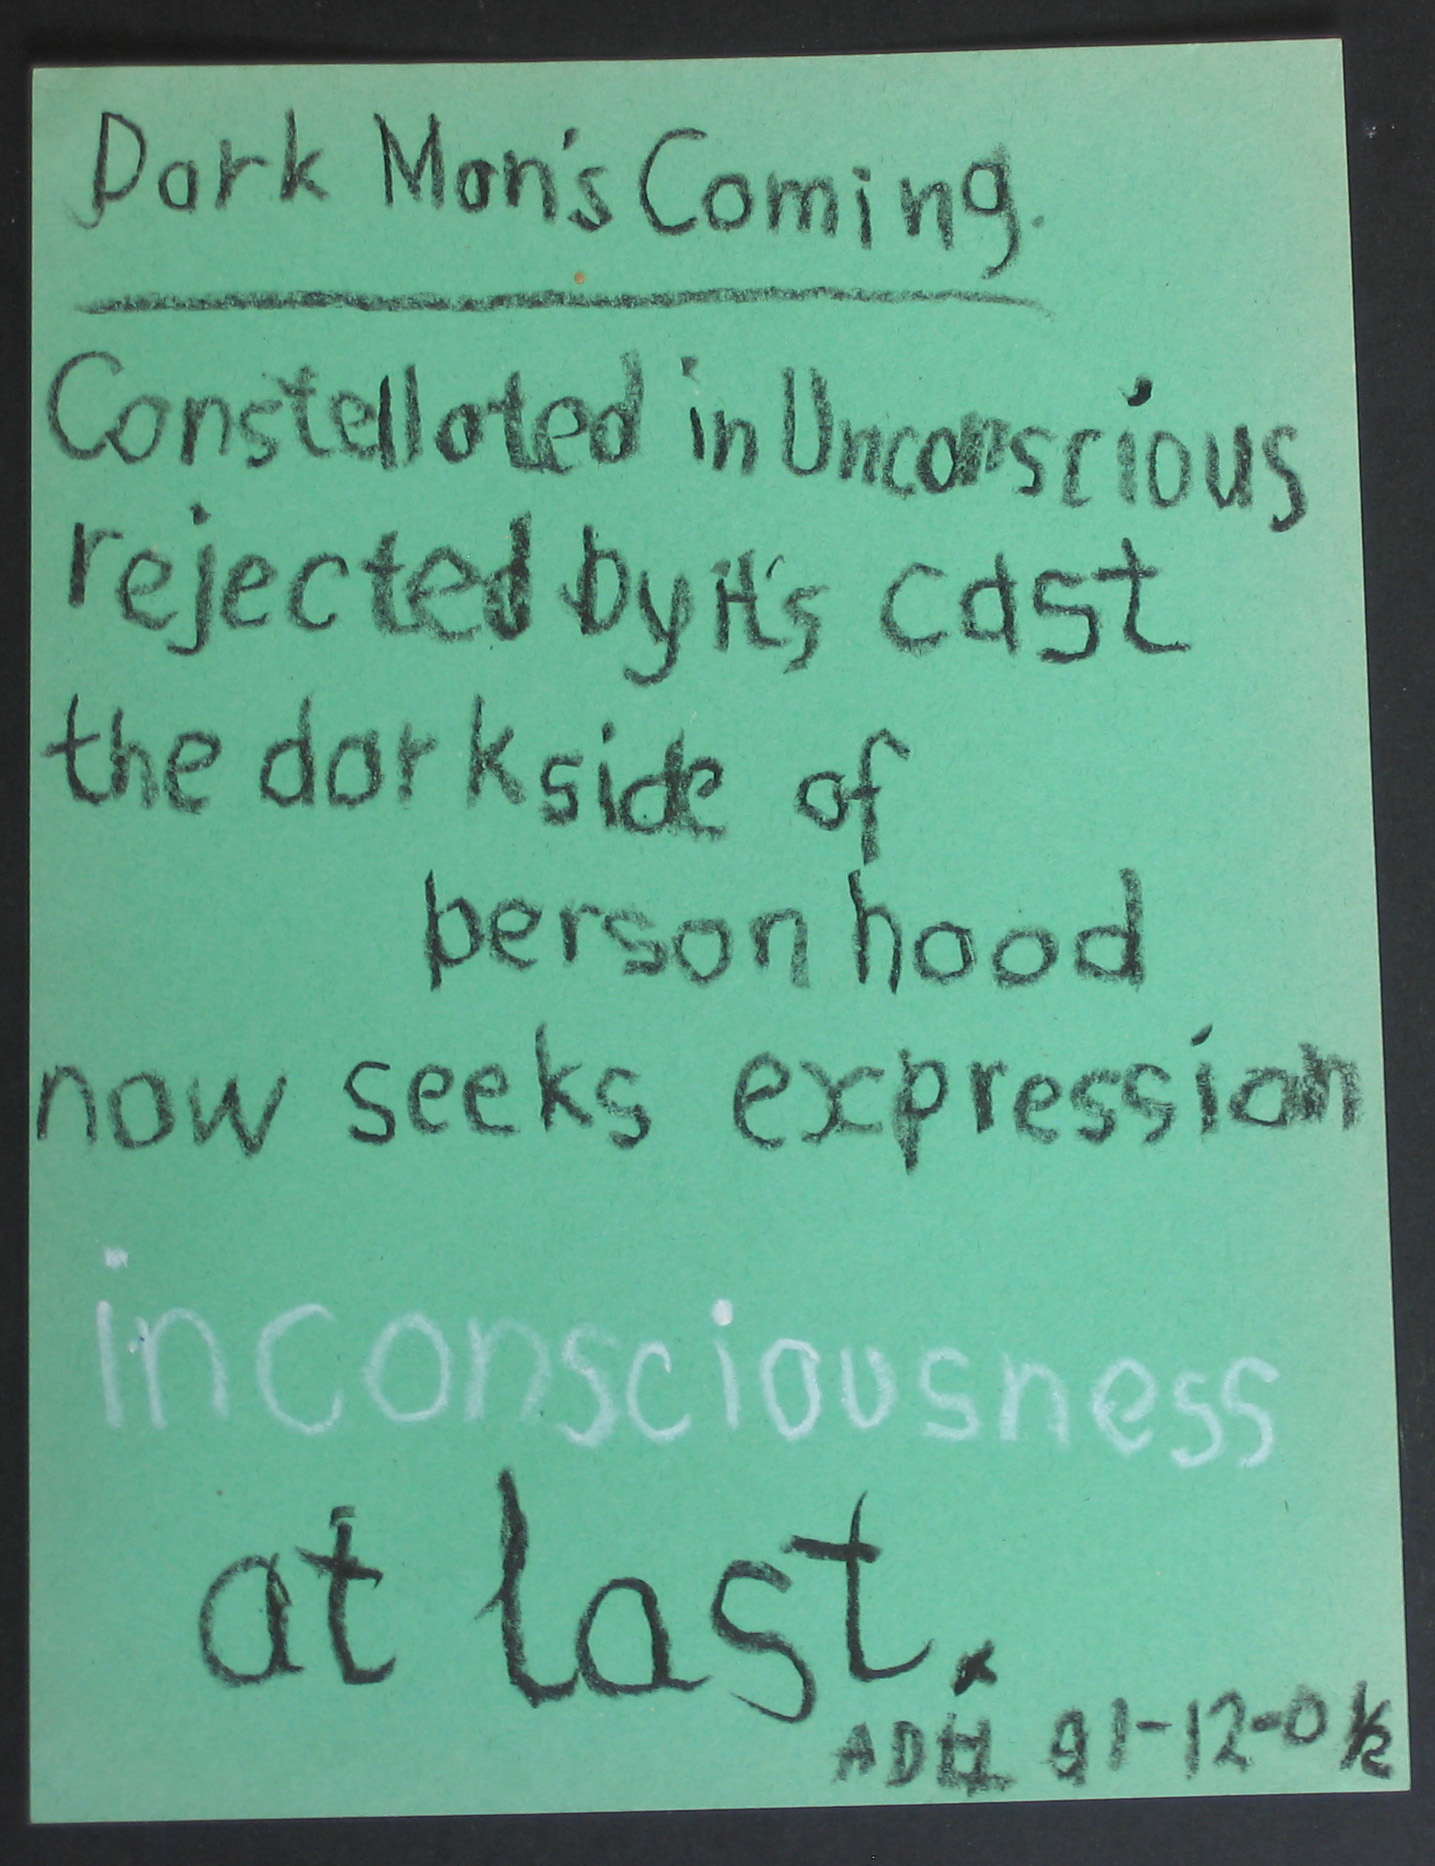 Dark Man's Coming.
Constellated in Unconscious
rejected by it's cast
the dark side of
personhood
now seeks expression
inconsciousness
at last.
91-12-0